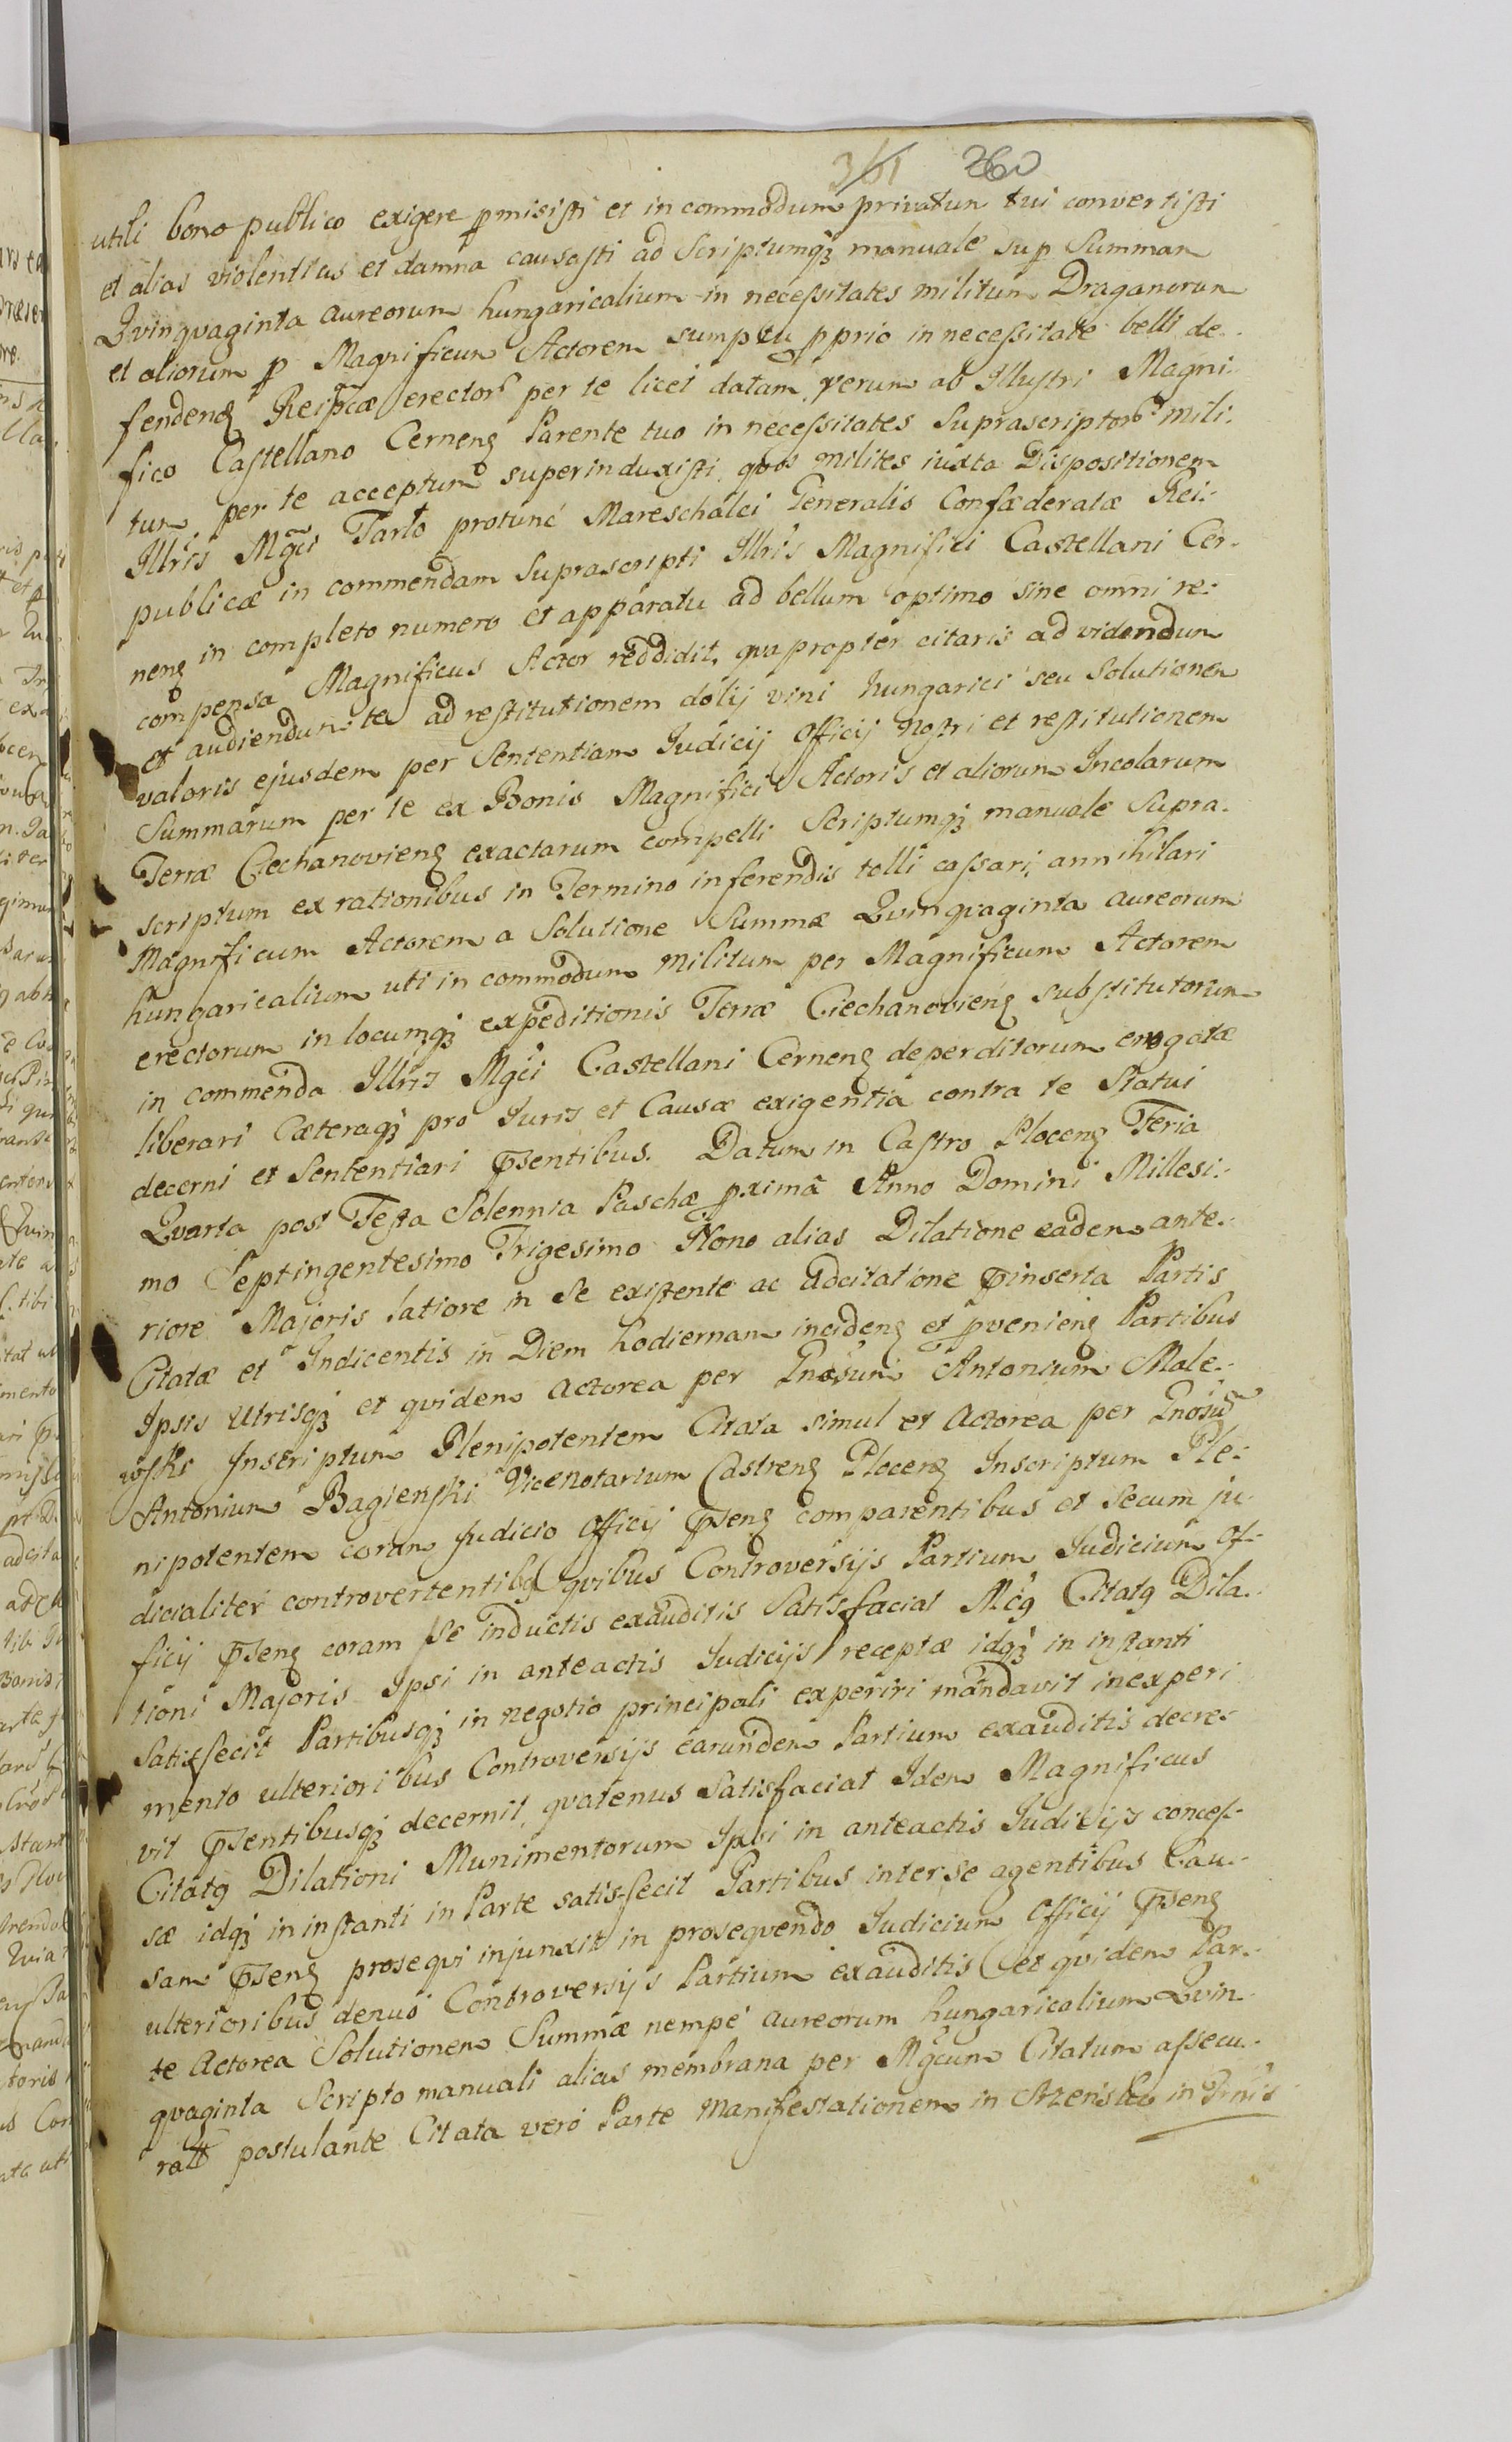 361 260
utili bono publico exigere pmisisti et in commodum privatum tui convertisti
et alias violentias et damna causasti ad Scriptumqȝ manuale sup Summam
Qvinqvaginta aureorum hungaricalium in necessitates militum Draganorum
et aliorum p Magnificum Actorem sumptu pprio in necessitate belli de-
fendenȝ Reipcæ erector per te licet datam, verum ab Illustri Magni-
fico Castellano Cernenȝ Parente tuo in necessitates Suprascriptor mili-
tum per te acceptum superinduxisti, qvos milites iuxta Dispositionem
Illris Mgci Tarło protunc Mareschalci Generalis Confæderatæ Rei-
publicæ in commendam Suprascripti Illris Magnifici Castellani Cer-
nenȝ in completo numero et apparatu ad bellum optimo sine omni re-
compensa Magnificus Actor reddidit, qvapropter citaris ad videndum
et audiendum te ad restitutionem dolij vini hungarici seu Solutionem
valoris ejusdem per Sententiam Iudicij Officij nostri et restitutionem
Summarum per te ex Bonis Magnifici Actoris et aliorum Incolarum
Terræ Ciechanovienȝ exactarum compelli Scriptumqȝ manuale Supra-
scriptum ex rationibus in Termino inferendis tolli cassari, annihilari
Magnificum Actorem a Solutione Summæ Qvinqvaginta aureorum
hungaricalium uti in commodum militum per Magnificum Actorem
erectorum in locumqȝ expeditionis Terræ Ciechanovienȝ substitutorum
in commenda Illris Mgci Castellani Cernenȝ deperditorum erogatæ
liberari Cæteraqȝ pro Iuris et Causæ exigentia contra te Statui
decerni et Sententiari psentibus. Datum in Castro Plocenȝ Feria
Qvarta post Festa Solennia Paschæ pxima Anno Domini Millesi-
mo Septingentesimo Trigesimo Nono alias Dilatione eadem ante-
riore Majoris latiore in Se existente ac adcitatione pinserta Partis
Citatæ et Indicentis in Diem hodiernam incidenȝ et pvenienȝ Partibus
Ipsis Utrisqȝ et qvidem Actorea per Gnosum Antonium Male-
wski Inscriptum Plenipotentem Citata simul et Actorea per Gnosum
Antonium Bagienski Vicenotarium Castrenȝ Plocenȝ Inscriptum Ple-
nipotentem coram Judicio Officij psenȝ comparentibus et Secum ju-
dicialiter controvertentibq qvibus Controversijs Partium Judicium Of-
ficij psenȝ coram se inductis exauditis Satisfaciat Mcg Citatg Dila-
tioni Majoris Ipsi in anteactis Iudicijs receptæ idqȝ in instanti
Satisfecit Partibusqȝ in negotio principali experiri mandavit inexperi
mento ulterioribus Controversijs earundem Partium exauditis decre-
vit psentibusqȝ decernit, qvatenus Satisfaciat Idem Magnificus
Citatg Dilationi Munimentorum Ipsi in anteactis Iudicijs conces-
sæ idqȝ in instanti in Parte satisfecit Partibus inter se agentibus Cau-
sam psenȝ proseqvi injunxit in proseqvendo Iudicium Officij psenȝ
ulterioribus denuo Controversijs Partium exauditis (et qvidem Par-
te Actorea Solutionem Summæ nempe aureorum hungaricalium Qvin-
qvaginta Scripto manuali alias membrana per Mgcum Citatum assecu-
rat postulante Citata vero Parte Manifestationem in in